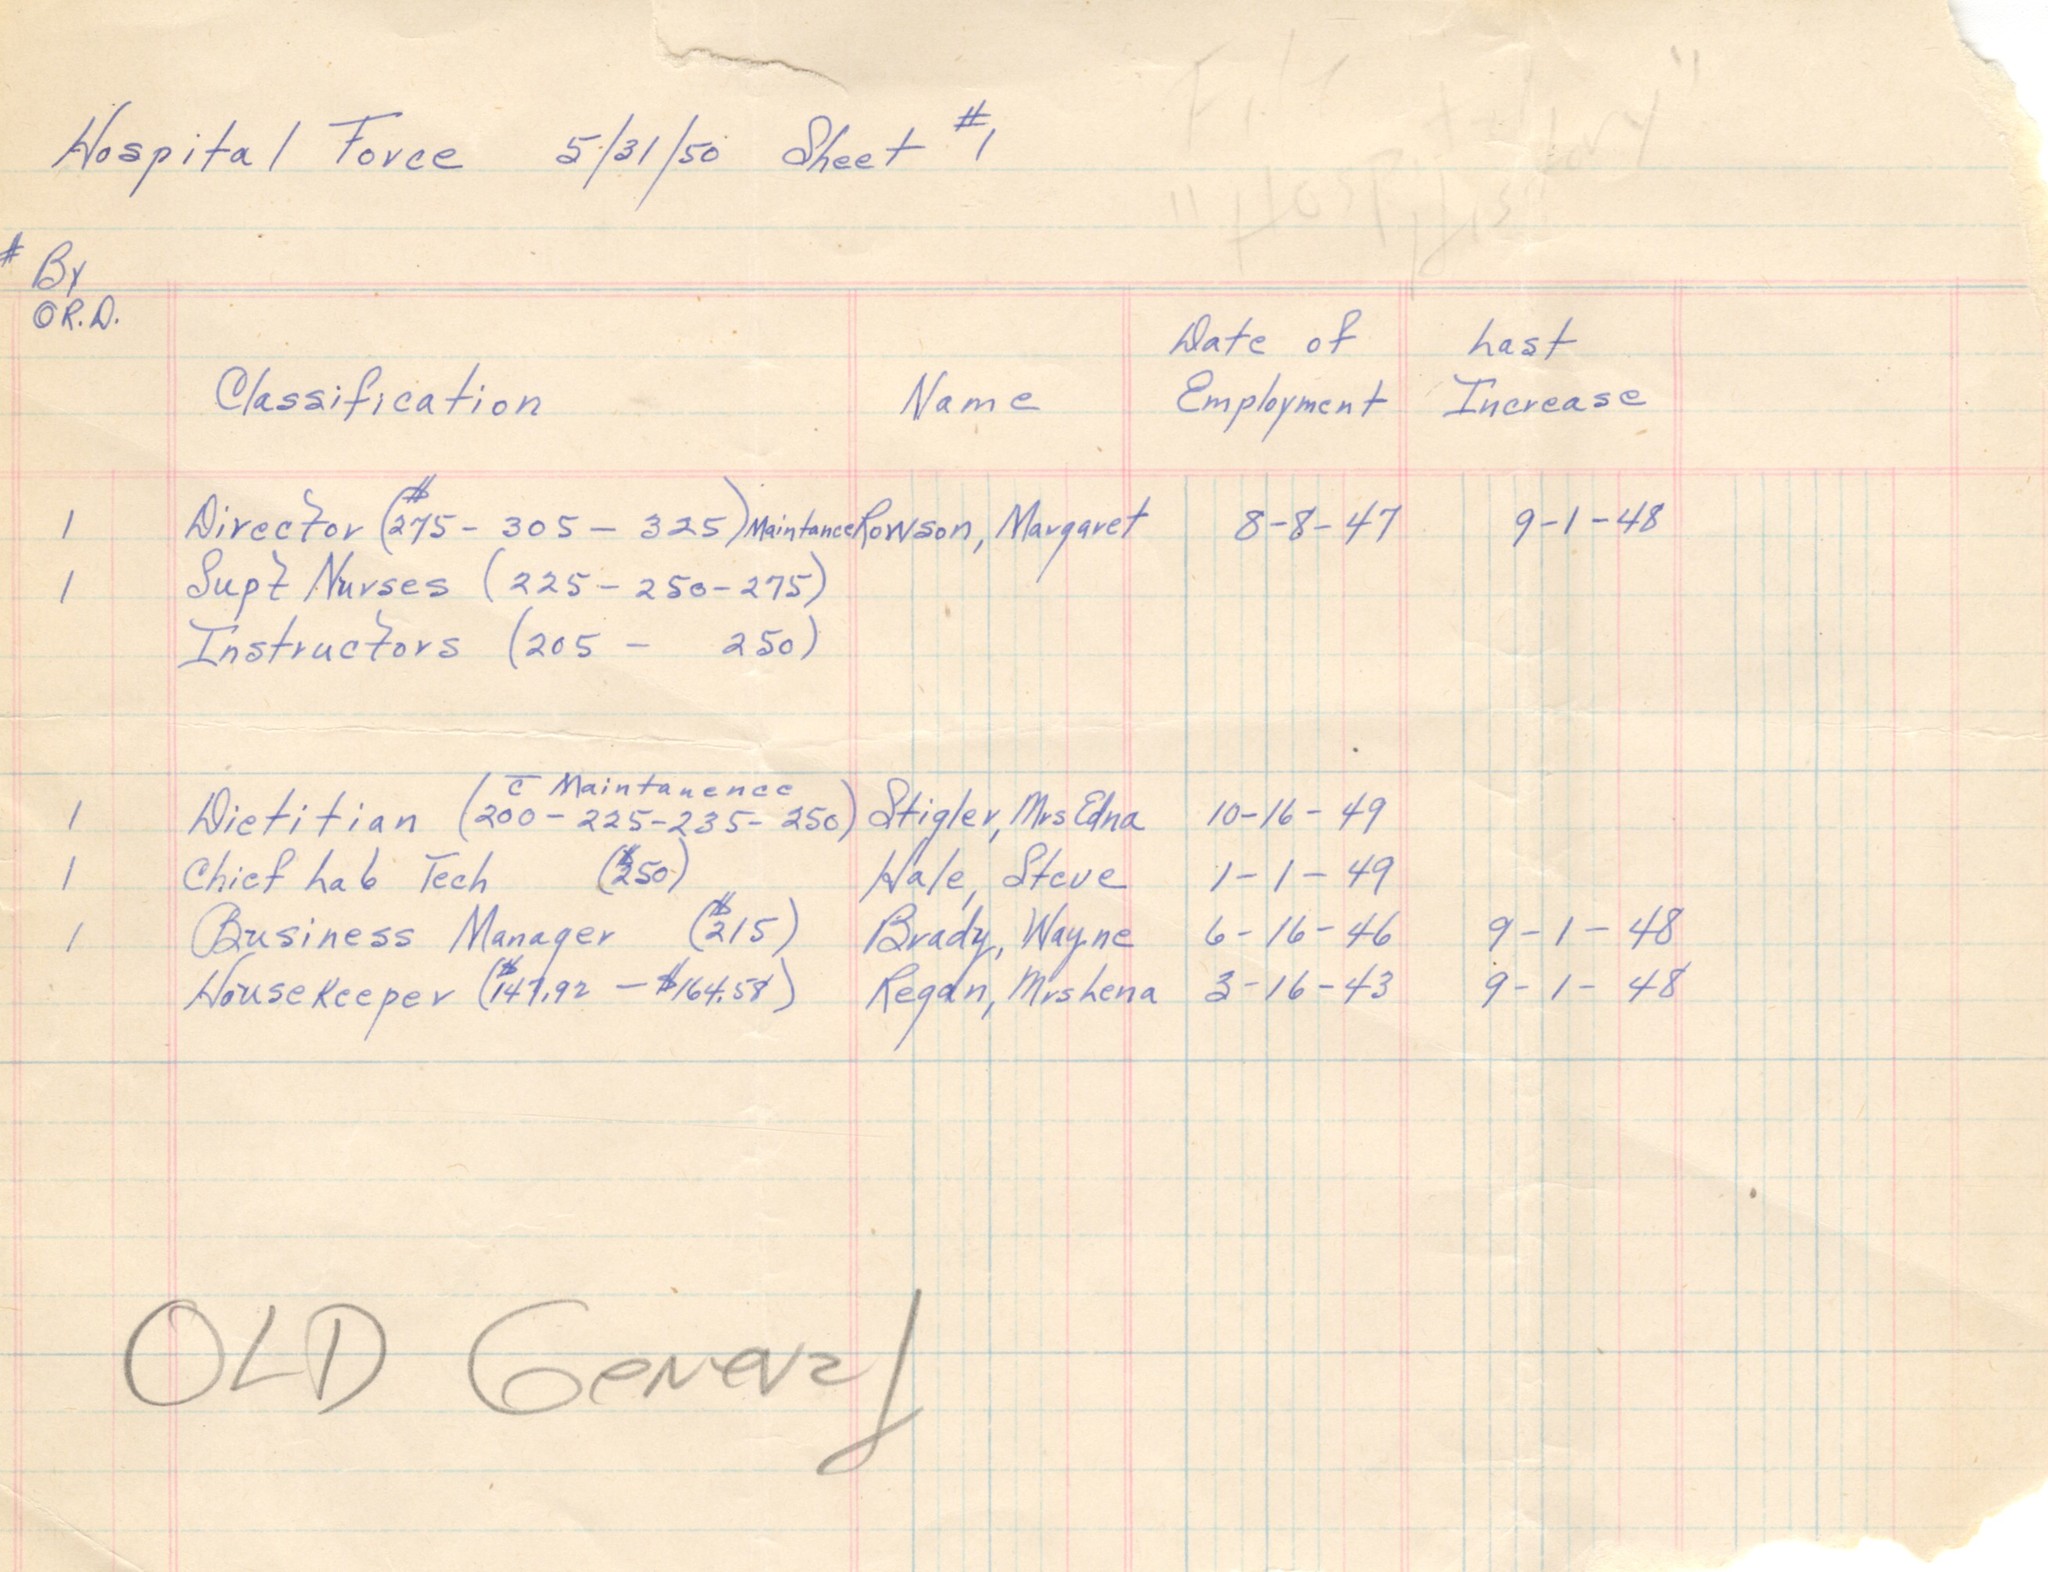 Hospital Force 5/31/50 Sheet #1
# By
O.R.D.
Date of Last
Classification Name Employment Increase
1 Director ($275 - 305 - 325) Maintance Rowson, Margaret 8-8-47 9-1-48
1 Supt Nurses (225 - 250 - 275)
Instructors (205 - 250)
c̄ Maintanence
1 Dietitian (200 - 225 - 235 - 250) Stigler, Mrs Edna 10-16-49
1 Chief Lab Tech ($250) Hale, Steve 1-1-49
1 Business Manager ($215) Brady, Wayne 6-16-46 9-1-48
Housekeeper ($147.92 - $164.58) Regan, Mrs Lena 3-16-43 9-1-48
OLD